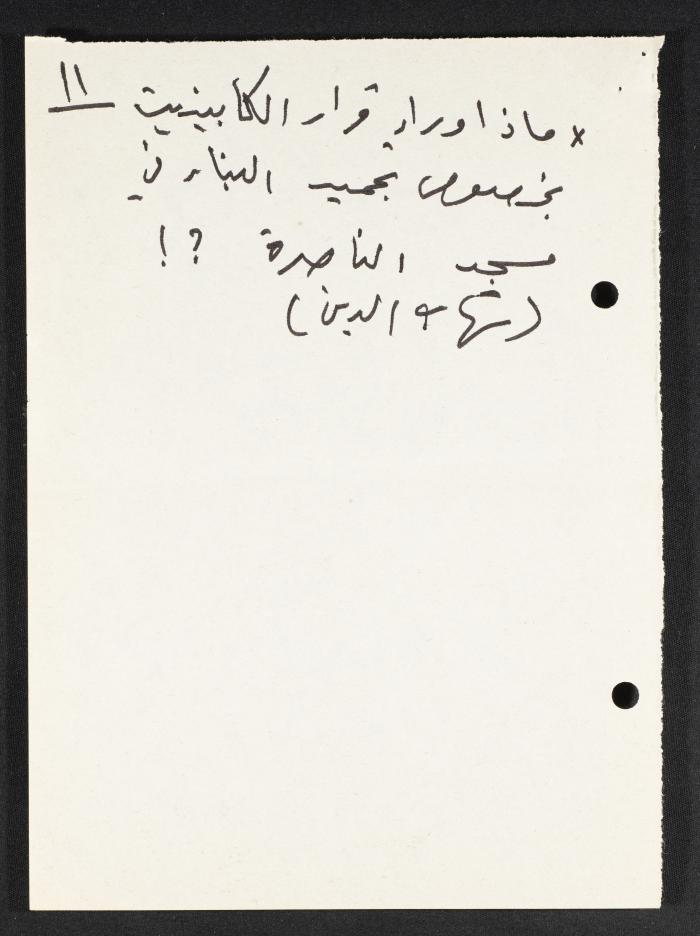 ١١
x ماذا وراء قرار الكابينيت
بخصوص تجميد البناء في
مسجد الناصرة ؟!
(شهاب الدين)